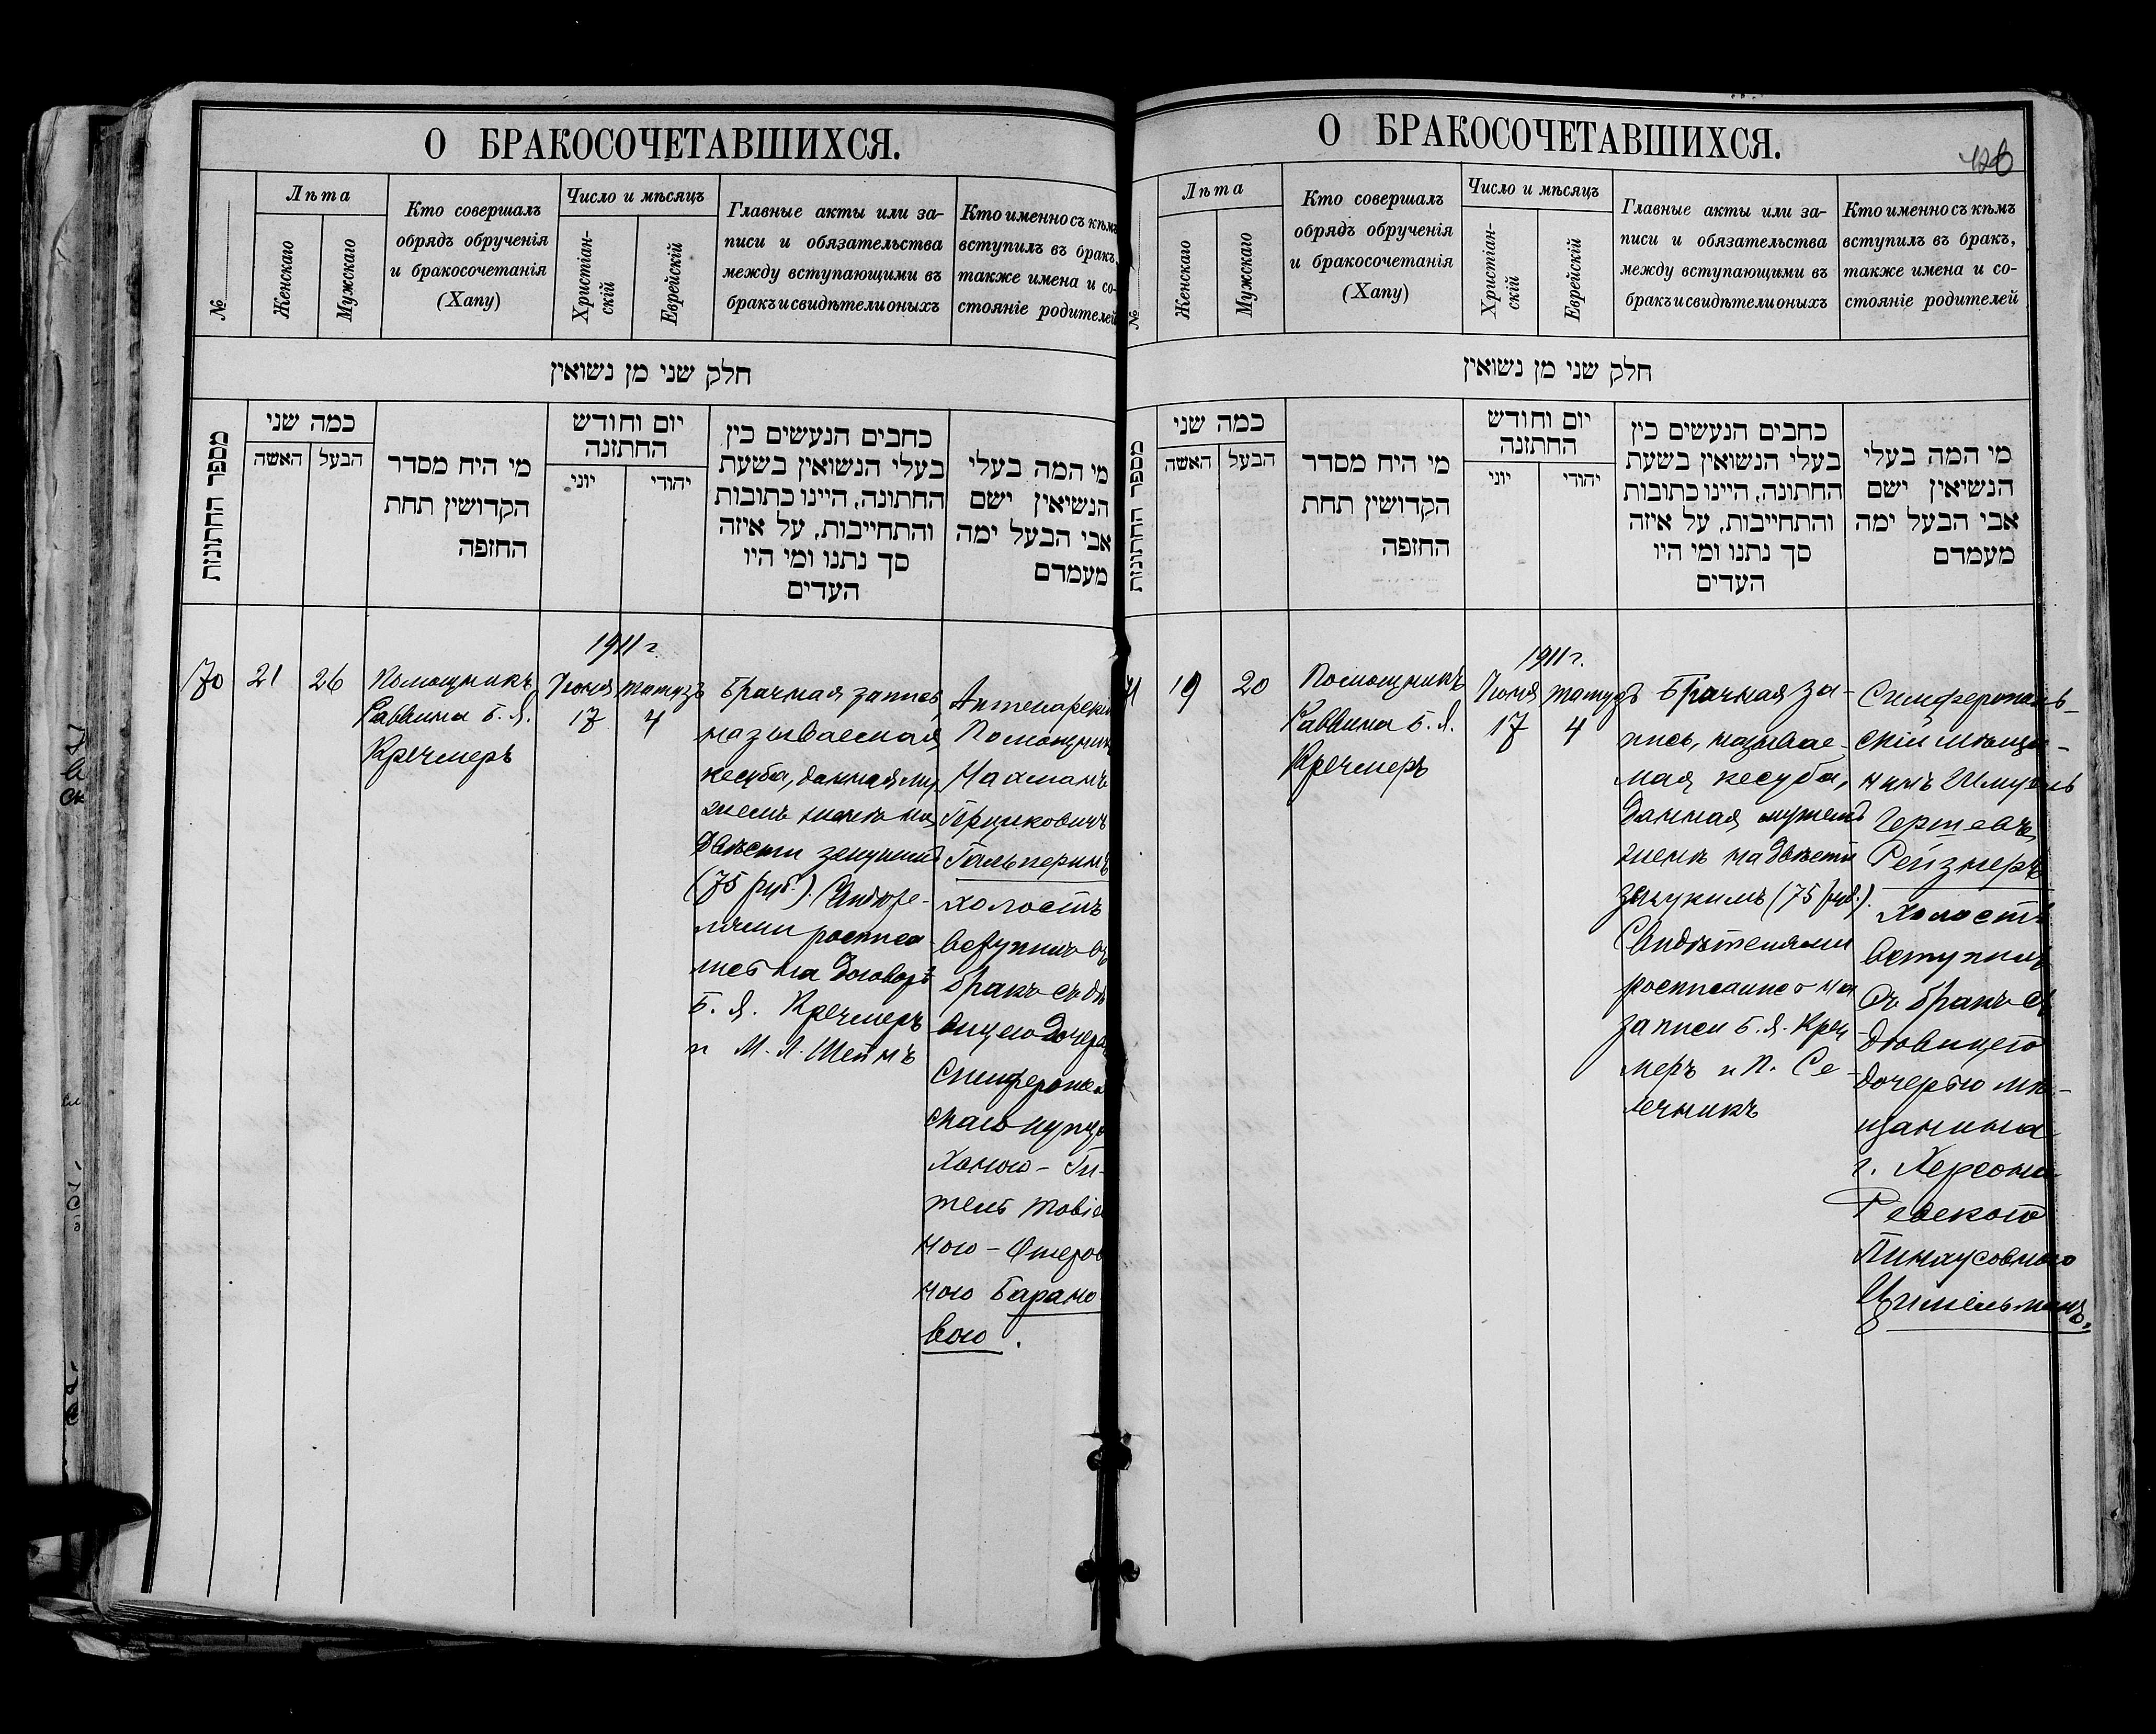 О БРАКОСОЧЕТАВШИХСЯ.
№
Лѣта
Женскаго
Мужскаго
Кто совершалъ
обрядъ обрученія
и бракосочетанія
(Хапу)
Число и мѣсяцъ
Христіан-
скій
Еврейскій
Главные акты или за-
писи и обязательства
между вступающими въ
бракъ и свидѣтели оныхъ
Кто именно съ кѣмъ
вступилъ въ бракъ,
также имена и со-
стояніе родителей
חלק שני מן נשואין
מספר החתונות
כמה שני
האשה
הבעל
מי היח מסדר
הקדושין תחת
החופה
יום וחודש
החתונה
יוני
יהודי
כתבים הנעשים בין
בעלי הנשואין בשעת
החתונה, היינו כתובות
והתחייבות, על איזה
סך נתנו ומי היו
העדים
מי המה בעלי
הנשיאין ישם
אבי הבעל ימה
מעמדם
1911 г.
70
21
26
Помощникъ
Раввина Б. Я.
Кречмеръ
Іюня
17
тамузъ
4
Брачная запись,
называемая
кесуба, данная му
жемъ женѣ на
двѣсти зекукимъ
(75 руб.). Свидѣте-
лями росписа
лись на договорѣ
Б. Я. Кречмеръ
и М. Л. Штейнъ
Аптекарскій
Помощникъ
Нахманъ
Ицковичъ
Гальперинъ
холостъ
вступилъ въ
бракъ съ дѣ
вицею дочерью
Симферополь
скаго купца
Ханою - Ги-
тель Товіе
ною - Ошеров
ною Барано
вою.
О БРАКОСОЧЕТАВШИХСЯ.
126
№
Лѣта
Женскаго
Мужскаго
Кто совершалъ
обрядъ обрученія
и бракосочетанія
(Хапу)
Число и мѣсяцъ
Христіан-
скій
Еврейскій
Главные акты или за-
писи и обязательства
между вступающими въ
бракъ и свидѣтели оныхъ
Кто именно съ кѣмъ
вступилъ въ бракъ,
также имена и со-
стояніе родителей
חלק שני מן נשואין
מספר החתונות
כמה שני
האשה
הבעל
מי היח מסדר
הקדושין תחת
החופה
יום וחודש
החתונה
יוני
יהודי
כתבים הנעשים בין
בעלי הנשואין בשעת
החתונה, היינו כתובות
והתחייבות, על איזה
סך נתנו ומי היו
העדים
מי המה בעלי
הנשיאין ישם
אבי הבעל ימה
מעמדם
1911 г.
71
19
20
Помощникъ
Раввина Б. Я.
Кречмеръ
Іюня
17
тамузъ
4
Брачная за-
пись, называе-
мая кесуба,
данная мужемъ
женѣ на двѣсти
зекукимъ (75 руб.).
Свидѣтелями
росписались на
записи Б. Я. Креч
меръ и П. Се-
лечникъ
Симферополь-
скій мѣща-
нинъ Шмуель
Гершевъ
Рейзнеръ
холостъ
вступилъ
въ бракъ съ
дѣвицею
дочерью мѣ-
щанина
г. Херсона
Ревекою
Пинхусовною
Цимельманъ.